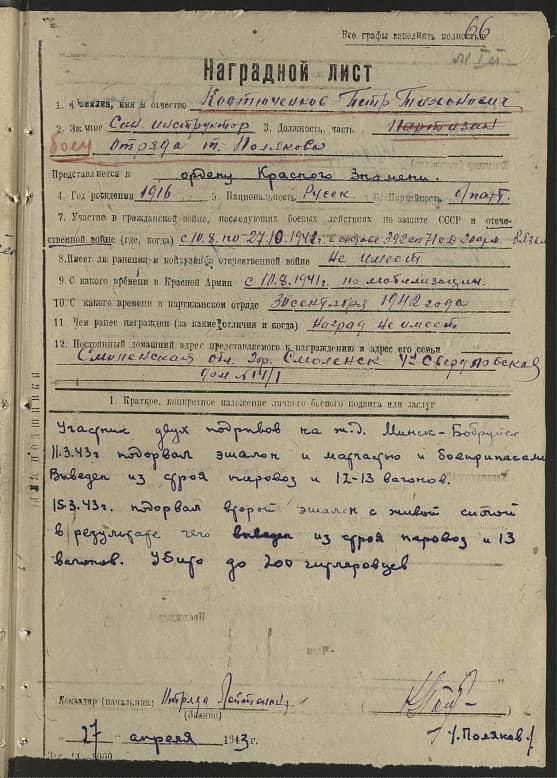 66
Все графы заполнять полностью
Наградной лист
1. Фамилия, имя и отчество Костюченков Петр Тихонович
2. Звание Сан. инструктор 3. Должность, часть Партизан
боец Отряда т. Полякова
Представляется к ордену Красного Знамени.
4. Год рождения 1916 5. Национальность Русск 6. Партийность б/парт
7. Участие в гражданской войне, последующих боевых действиях по защите СССР и отече-
ственной войне (где, когда) с 10.8. по 27.10.1941г. в составе
8. Имеет ли ранения и контузии в отечественной войне Не имеет
9. С какого времени в Красной Армии с 10.8.1941г. по мобилизации.
10. С какого времени в партизанском отряде 30 сентября 1942 года
11. Чем ранее награжден (за какие отличия и когда) Наград не имеет
12. Постоянный домашний адрес представляемого к награждению и адрес его семьи
Смоленская обл. гор. Смоленск ул. Свердловская
дом № 14/1
для подшивки
1. Краткое, конкретное изложение личного боевого подвига или заслуг
Участник двух подрывов на ж.д. Минск-Бобруйск
11.3.43г подорвал эшалон и и боеприпасами
Выведен из строя паровоз и 12-13 вагонов.
15.3.43г. подорвал второй эшалон с живой силой
в результате чего выведен из строя паровоз и 13
вагонов. Убито до 200 гитлеровцев
Командир (начальник) Отряда Лейтенант
(Звание)
27 апреля 1943г.
/Поляков/